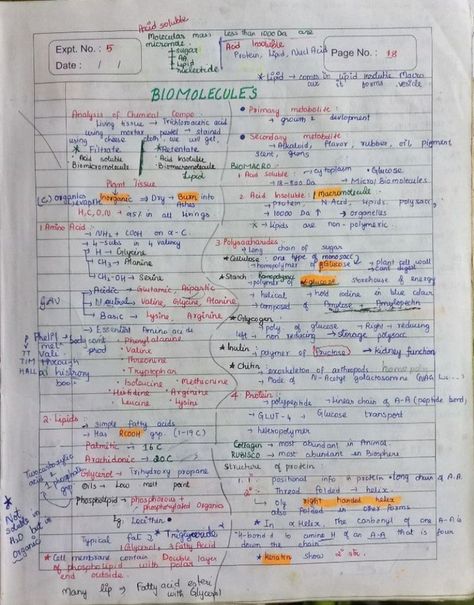 Acid soluble
Molecular mass less than 1000 Da are
micromole. Acid Insoluble
sugar
AA
Lipid
nucleotide
Protein, Lipid, Nucl Acid
Expt. No. : 5
Date : / /
Page No. : 18
* Lipid → comes in lipid insoluble Macro
cuz it forms vesicle
BIOMOLECULES
Analysis of Chemical Compo
Living tissue → Trichloroacetic acid
using mortar pestel → stained
using cheese cloth we will get,
* Filtrate * Retentate
• Acid soluble • Acid Insoluble
Biomicromolecule Biomacromolecule
Lipid
Plant Tissue
(C) organics Inorganic → Dry → Burn into
Ashes
H,C,O,N → 95% in all livings
1. Amino Acid :-
→ NH2 + COOH on α-C.
→ 4-subs in 4 valency
→ H → Glycine
→ CH3 → Alanine
→ CH2-OH → Serine
→ Acidic → Glutamic, Aspartic
GAV → Neutral → Valine, Glycine, Alanine
→ Basic → Lysine, Arginine
→ Essential Amino acids
• Phenylalanine
• Valine
• Threonine
• Tryptophan
• Isoleucine • Methionine
• Histidine • Arginine
• Leucine • Lysine
2. Lipids
→ simple fatty acids
→ Has RCOOH grp. (1-19 C)
Palmitic → 16 C
Arachidonic → 20 C
Glycerol → Trihydroxy propane
Oils → Low melt point
Phospholipid → phosphorous +
phosphorylated Organics
Eg. Lecithin
* Not
soluble in
H2O but in
Organic
Typical fat → Triglyceride
1 Glycerol, 3 Fatty Acid
* Cell membrane contain Double layer
of phospholipids with polar
end outside.
Many lip → Fatty acid ester
with Glycerol
• Primary metabolite :
→ growth & devlopment
• Secondary metabolite
→ Alkaloid, flavor, rubber, oil, pigment
scent, gums
BIOMACRO
1. Acid soluble : → cytoplasm → Glucose
→ 18-800 Da → Micro/Biomolecules
2. Acid Insoluble : Macromolecule
→ protein, N. Acid, Lipids, polysacc,
→ 10000 Da ↑ → organelles
× → Lipids are non-polymeric
3. Polysaccharides
→ Long chain of sugar
* Cellulose : one type of monosacc
→ homopolymer of Glucose → plant cell wall
→ Cant digest
* Starch
→ polymer of glucose storehouse of energy
→ helical → hold iodine in blue colour
→ composed of Amylose + Amylopectin
* Glycogen
→ poly of glucose → Right → reducing
left → non reducing → storage polysacc
* Inulin → polymer of Fructose → kidney function
* Chitin → exoskeleton of arthropods
→ Made of N-Acetyl galactosamine
4. Protein :-
→ polypeptide → Linear chain of A-A (peptide bond)
→ GLUT-4 → Glucose transport
→ hetropolymer
Collagen → most abundant in Animal.
RUBISCO → most abundant in Biosphere
Structure of protein
1° : positional info in protein • long chain of A.A.
2° : Thread folded → helix
→ Oly right handed helix
also folded in other forms
* In α Helix, the carbonyl of one A-A is
H-bond to amine H of an A-A that is four
down the chain
* Keratin show 2° str.